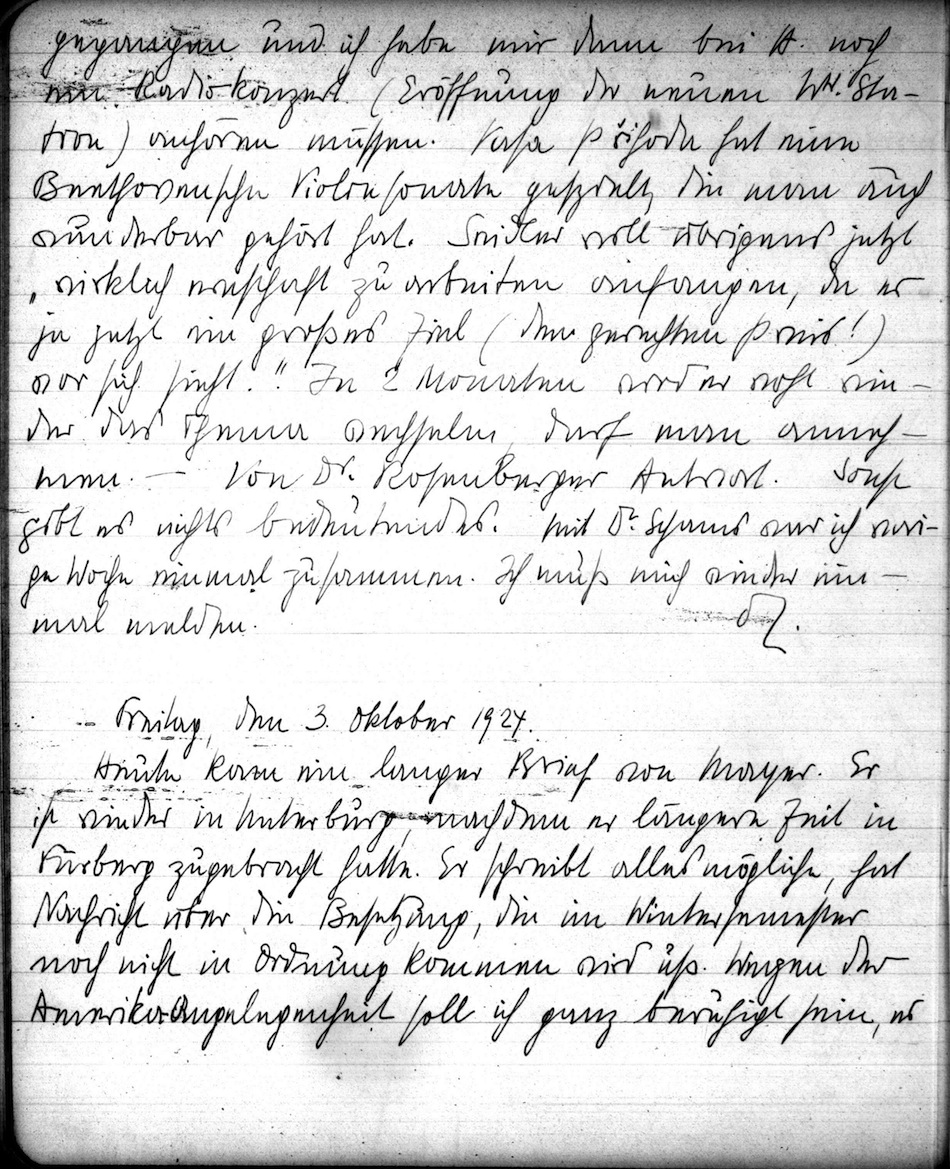 gegangen und ich habe mir dann bei H. noch
ein Radiokonzert (Eröffnung der neuen Wr. Sta-
tion) anhören müssen. Vasa Přihoda hat eine
Beethovensche Violinsonate gespielt, die man auch
wunderbar gehört hat. Seidler will übrigens jetzt
„wirklich ernschaft zu arbeiten anfangen, da er
ja jetzt ein großes Ziel (den gerechten Preis!)
vor sich sieht." In 2 Monaten wird er wohl wie-
der das Thema wechseln, darf man anneh-
men. — Von Dr. Rosenberger Antwort. Sonst
gibt es nichts bedeutendes. Mit Dr. Schams war ich vori-
ge Woche einmal zusammen. Ich muß mich wieder ein-
mal melden.
Freitag, den 3. Oktober 1924.
Heute kam ein langer Brief von Mayer. Er
ist wieder in Unterburg, nachdem er längere Zeit in
Fürberg zugebracht hatte. Er schreibt alles mögliche, hat
Nachricht über die Besetzung, die im Wintersemester
noch nicht in Ordnung kommen wird usw. Wegen der
Amerika-Angelegenheit soll ich ganz beruhigt sein, es